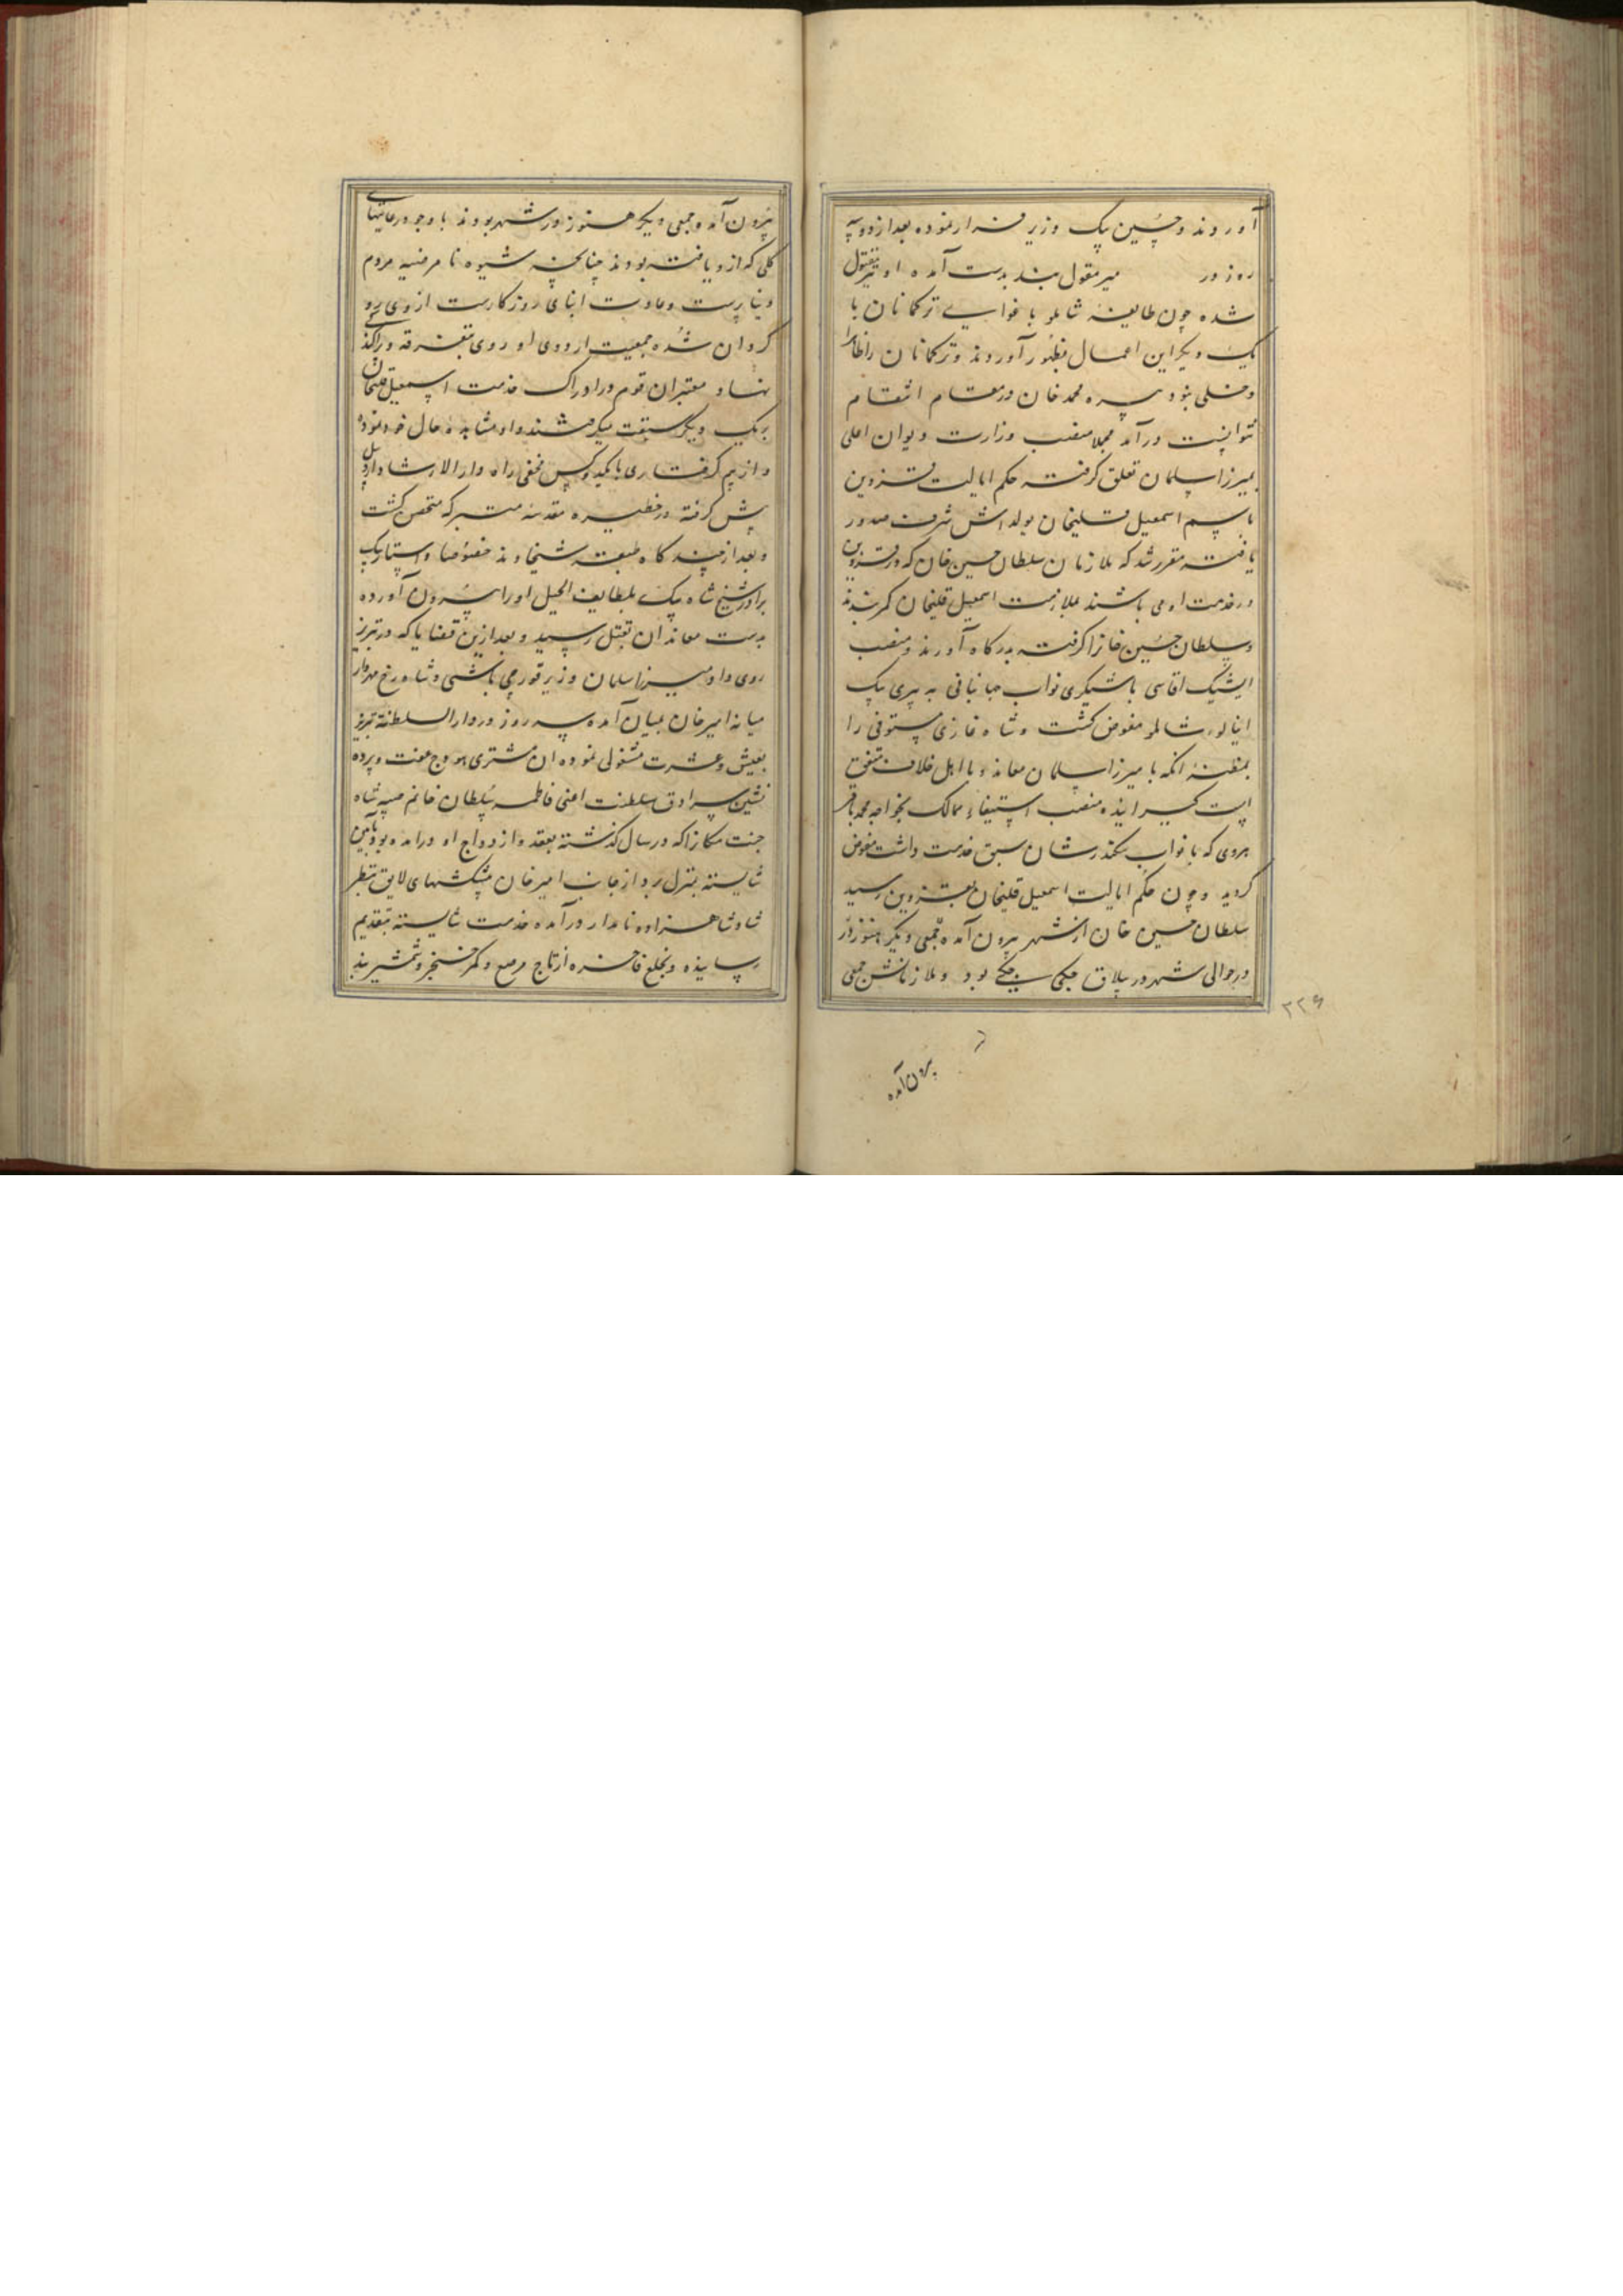 آوردند و حسین بیک وزیر فرار نموده بعد از دو سه
روز در میر مقول بند بدست آمده او نیز مقتول
شده چون طایفه شاملو باغوای ترکمانان با
یک دیگر این اعمال بظهور آوردند و ترکمانان را ظاهرا
دخلی نبود سپره محمد خان در مقام انتقام
نتوانست درآمد مجملا منصب وزارت دیوان اعلی
بمیرزا سلمان تعلق گرفت حکم ایالت قزوین
باسم اسمعیل قلیخان یولداش شرف صدور
یافت مقرر شد که ملازمان سلطان حسین خان که در قزوین
در خدمت او می باشند بملازمت اسمعیل قلیخان کمر بندند
و سلطان حسین خانرا گرفته بدرگاه آورند و منصب
ایشیک اقاسی باشیگری نواب جهانبانی به پیری بیک
اینالوء شاملو مفوض گشت و شاه غازی مستوفی را
بمظنه آنکه با میرزا سلمان معاند و با اهل خلاف متفق
است گیرانیده منصب استیفاء ممالک بخواجه محمد باقر
هروی که با نواب سکندرشان سبق خدمت داشت مفوض
گردید و چون حکم ایالت اسمعیل قلیخان بقزوین رسید
سلطان حسین خان از شهر بیرون آمده جمعی دیگر هنوز در
در حوالی شهر در ییلاق جکی بود و ملازمانش جمعی
۲۲۶
بیرون آمده
بیرون آمد و جمعی دیگر هنوز در شهر بودند با وجود رعایتهای
کلی که از و یافته بودند چنانچه شیوه نا مرضیه مردم
دنیا پرست و عادت ابنای روزگارست از وی رو
گردان شده جمعیت اردوی او روی بتفرقه و پراکندگی
نهاد و معتبران قوم در ادراک خدمت اسمعیل قلیخان
بریک دیگر سبقت میگرفتند و او مشاهده حال خود نموده
و از بیم گرفتاری با یکدو کس مخفی راه دارالارشاد اردبیل
پیش گرفته در حظیره مقدسه متبرکه متحصن گشت
و بعد از چند گاه طبقه شیخاوند خصوصا و استاربک
برادر شیخ شاه بیک بلطایف الحیل او را بیرون آورده
بدست معاندان بقتل رسید و بعد ازین قضایا که در تبریز
روی داد میرزا سلمان وزیر قورچی باشی و شاه رخ مهردار
میانه امیر خان بمیان آمده سه روز در دارالسلطنه تبریز
بعیش و عشرت مشغولی نموده آن مشتری هودج عفت و پرده
نشین سرادق سلطنت اعنی فاطمه سلطان خانم صبیه شاه
جنت مکانرا که در سال گذشته بعقد و ازدواج او درآمده بود بآیین
شایسته بمنزل برد از جانب امیر خان پیشکشهای لایق بنظر
شاه و شاهزاده نامدار درآمده خدمت شایسته بتقدیم
رسانیده و بخلع فاخره از تاج مرصع و کمر خنجر و شمشیر بند